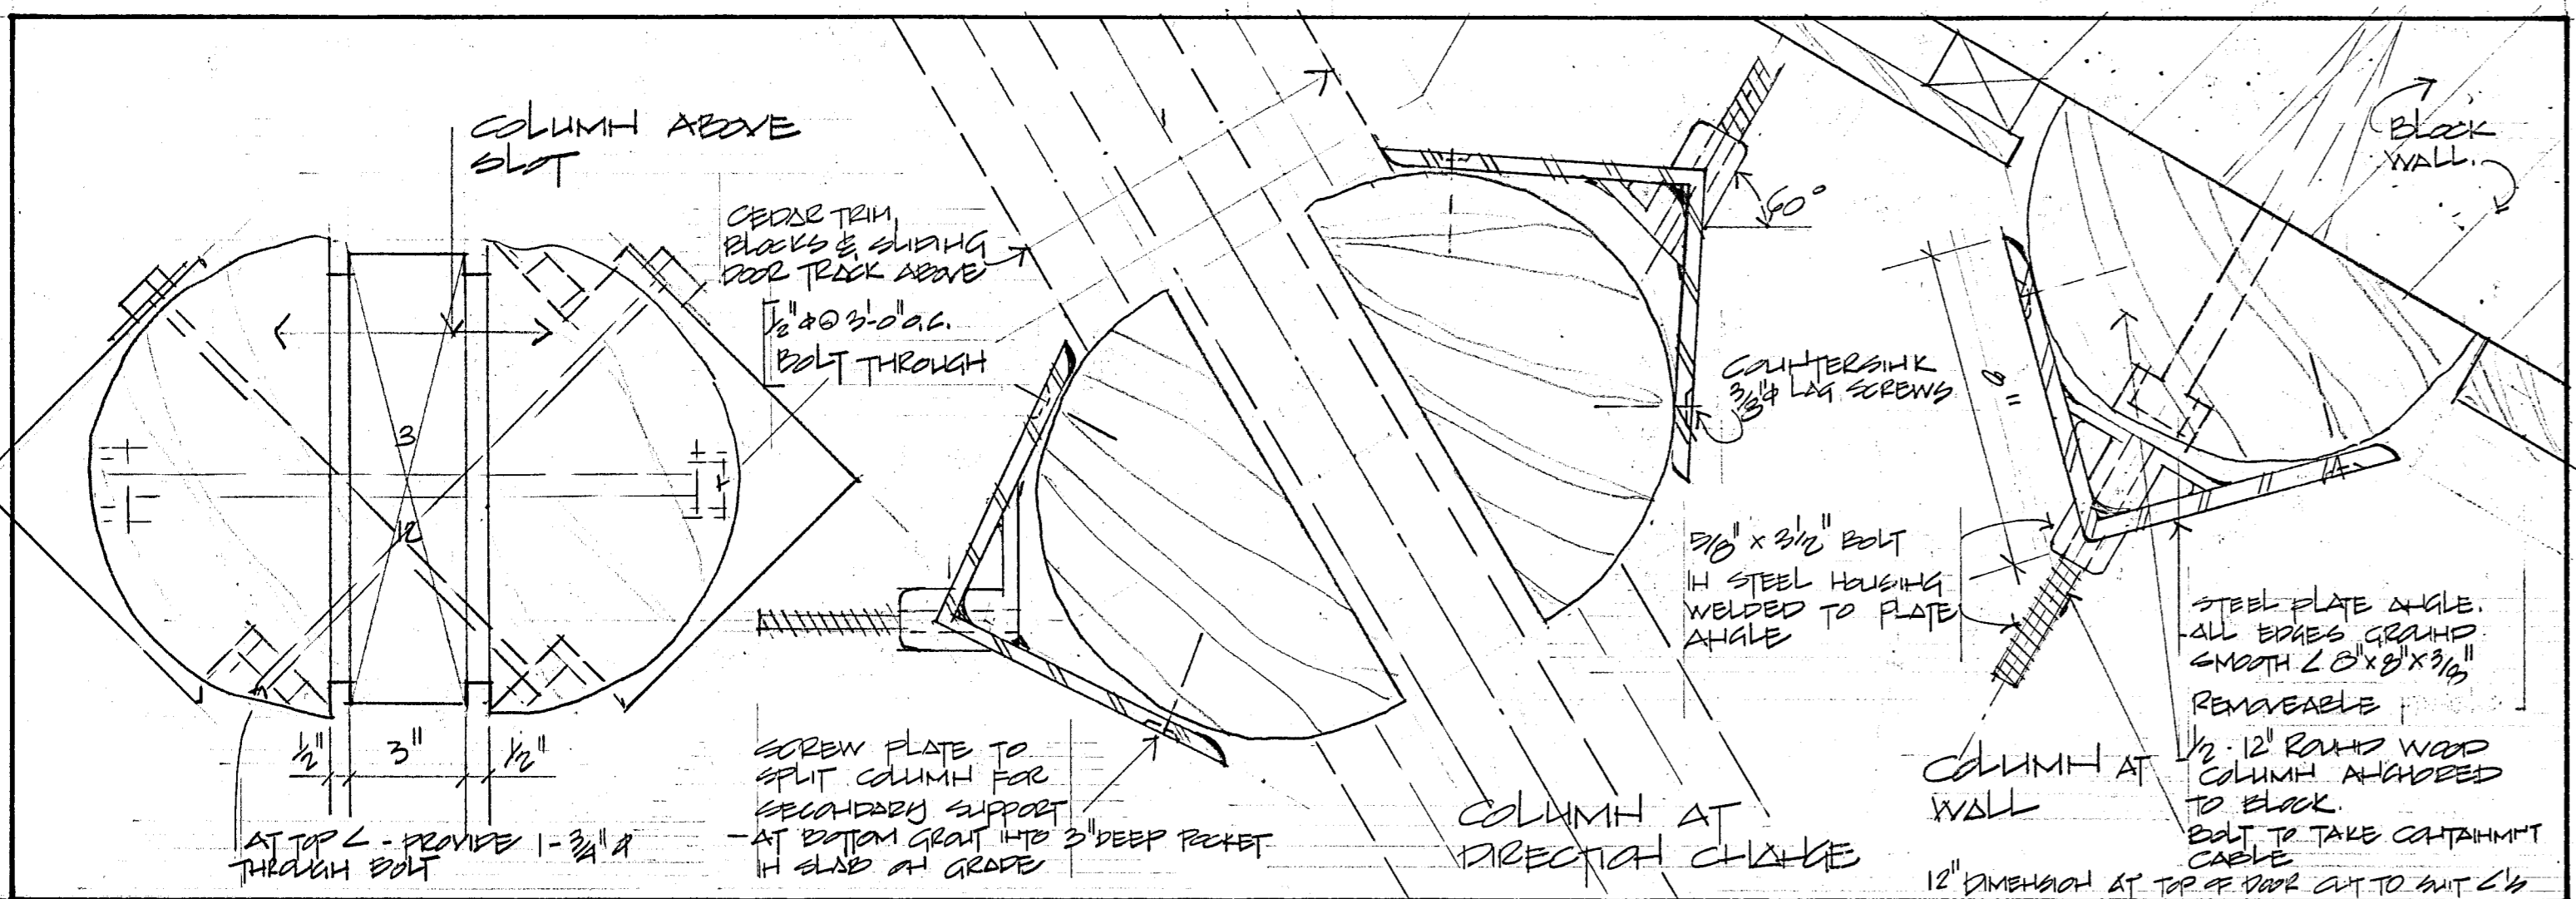 COLUMN ABOVE
SLOT
CEDAR TRIM,
BLOCKS & SLIDING
DOOR TRACK ABOVE
1/2"ϕ@ 3'-0" O.C.
BOLT THROUGH
3
12
1/2"
3"
1/2"
AT TOP ∠ - PROVIDE 1-3/4"ϕ
THROUGH BOLT
SCREW PLATE TO
SPLIT COLUMN FOR
SECONDARY SUPPORT
- AT BOTTOM GROUT INTO 3" DEEP POCKET
IN SLAB ON GRADE
60°
COUNTERSINK
LAG SCREWS
COLUMN AT
DIRECTION CHANGE
BLOCK
WALL.
5/8" x 3 1/2" BOLT
IN STEEL HOUSING
WELDED TO PLATE
ANGLE
STEEL PLATE ANGLE.
-ALL EDGES GROUND
SMOOTH ∠ 8"x8"x3/8"
REMOVEABLE
1/2 - 12" ROUND WOOD
COLUMN ANCHORED
TO BLOCK.
BOLT TO TAKE CONTAINMNT
CABLE
COLUMN AT
WALL
12" DIMENSION AT TOP OF DOOR CUT TO SUIT ∠'S